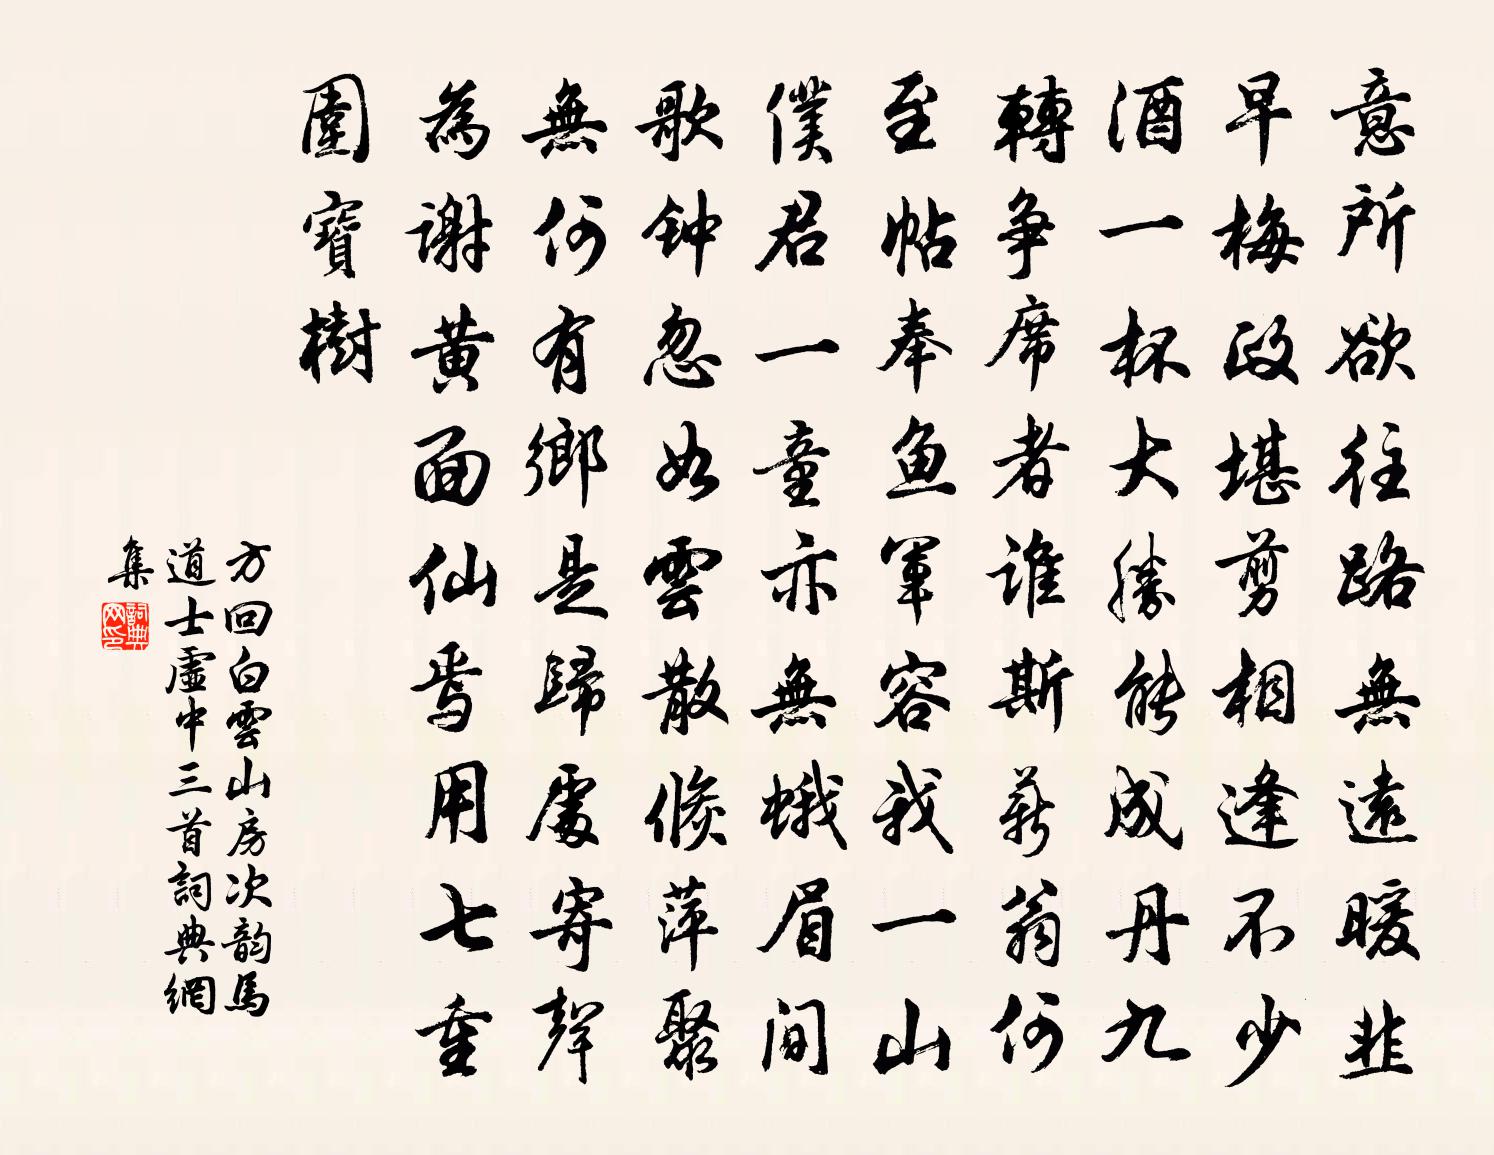 意所欲往路無遠暖韭
早梅政堪剪相逢不少
酒一杯大勝能成丹九
轉争席者誰斯薪翁何
至帖奉魚軍容我一山
僕君一童亦無蛾眉間
歌钟忽如雲散倏萍聚
無何有鄉是歸處寄聲
為謝黄面仙焉用七重
圍寶樹
方回白雲山房次韵馬
道士虛中三首詞典網
集
詞典网印